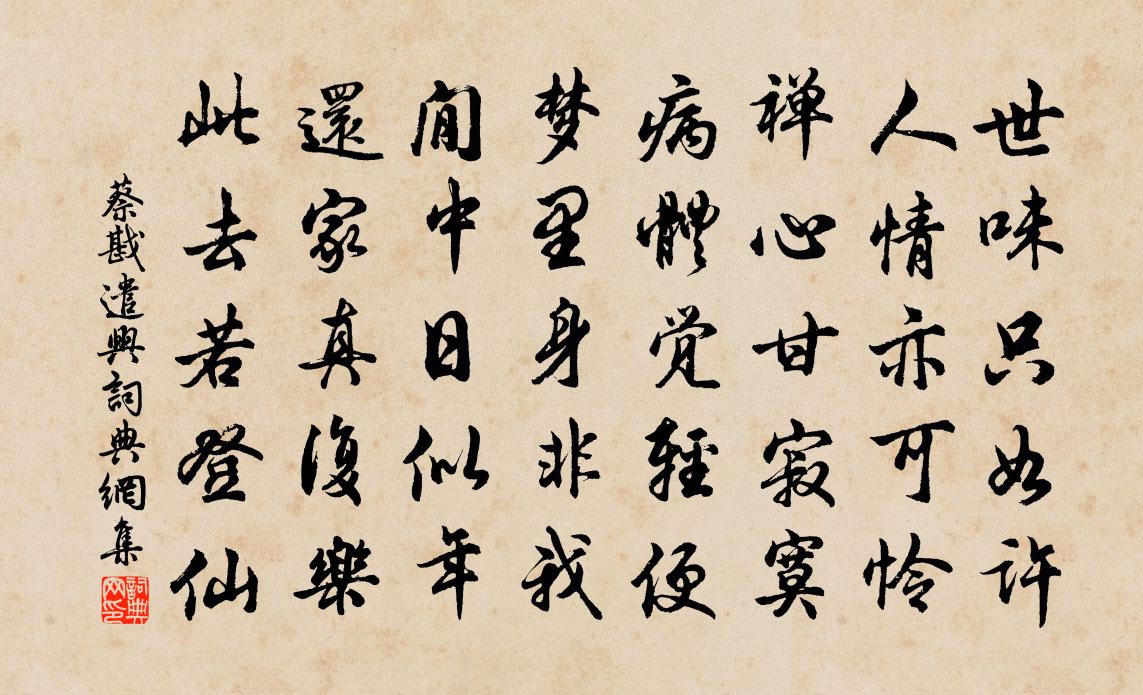 世味只如许
人情亦可怜
禅心甘寂寞
病體觉輕便
梦里身非我
閒中日似年
還家真復樂
此去若登仙
蔡戡遣興詞典網集
詞典网印